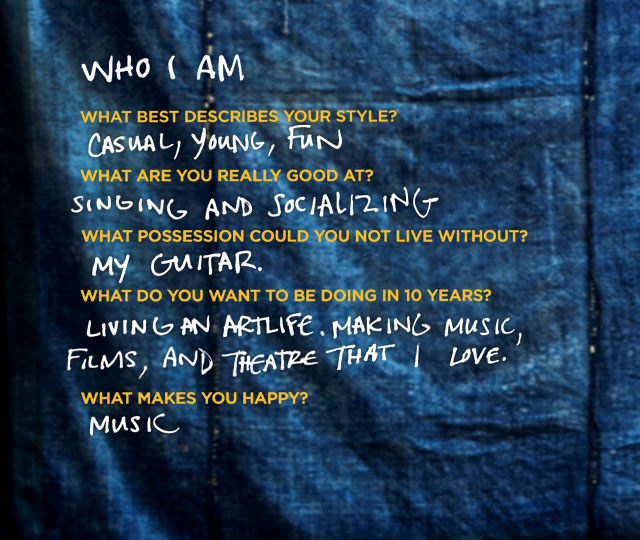 WHO I AM
WHAT BEST DESCRIBES YOUR STYLE?
CASUAL, YOUNG, FUN
WHAT ARE YOU REALLY GOOD AT?
SINGING AND SOCIALIZING
WHAT POSSESSION COULD YOU NOT LIVE WITHOUT?
MY GUITAR.
WHAT DO YOU WANT TO BE DOING IN 10 YEARS?
LIVING AN ARTLIFE. MAKING MUSIC,
FILMS, AND THEATRE THAT I LOVE.
WHAT MAKES YOU HAPPY?
MUSIC